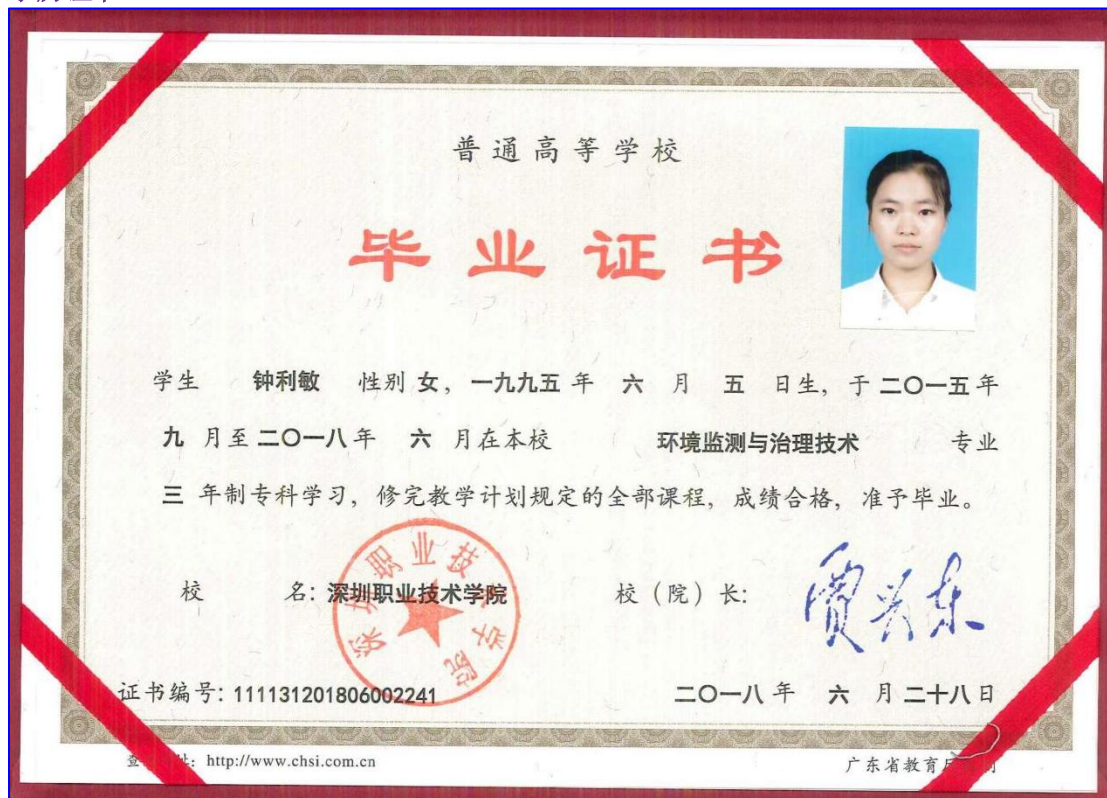 普通高等学校
毕业证书
学生 钟利敏 性别 女，一九九五 年 六 月 五 日生，于 二〇一五 年
九 月至 二〇一八 年 六 月在本校 环境监测与治理技术 专业
三 年制专科学习，修完教学计划规定的全部课程，成绩合格，准予毕业。
校 名：深圳职业技术学院 校（院）长：贾兴东
深圳职业技术学院
证书编号：111131201806002241 二〇一八 年 六 月 二十八 日
查 址：http://www.chsi.com.cn 广东省教育厅